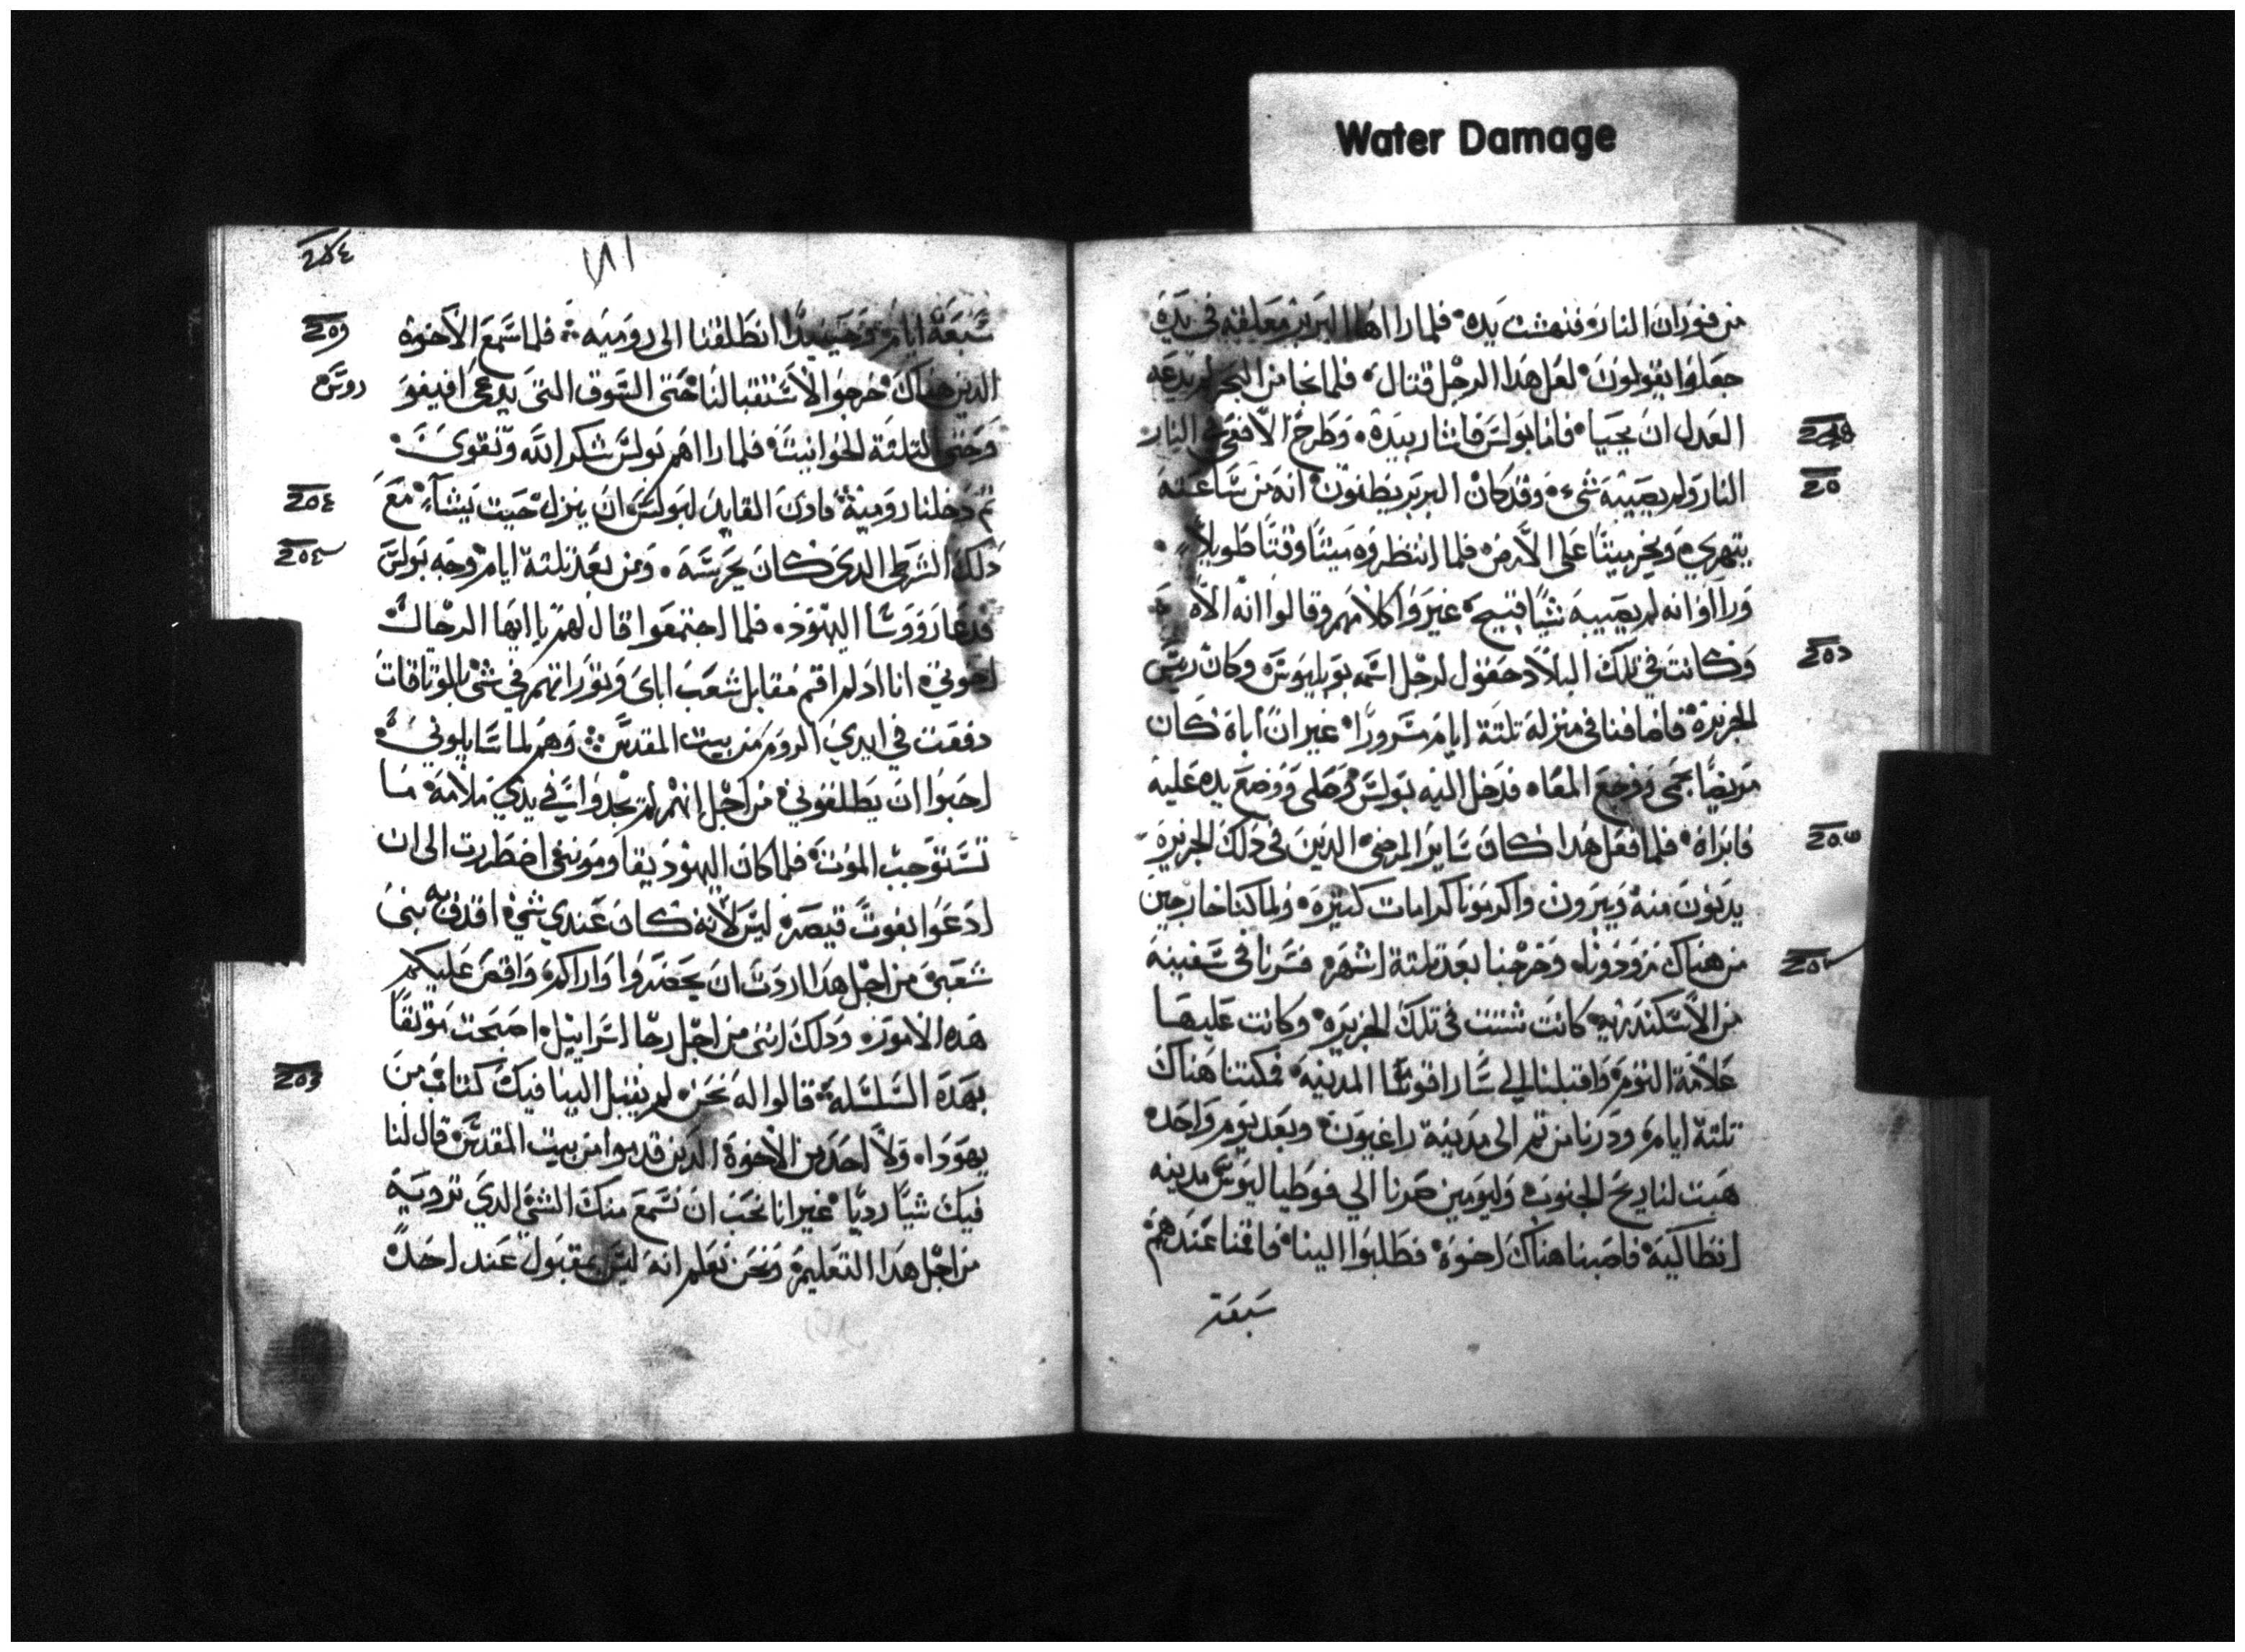 Water Damage
من فوران النار فنهشت يده فلما راا اهل البربر معلقه في يده
جعلوا يقولون لعل هدا الرجل قتال فلما نجا من البحر لم يدعه
العدل ان يحيا فاما بولس فاشار بيده وطرح الافعى في النار
النار ولم يصيبه شيء وقد كان البربر يظنون انه من ساعته
يتهري ويخر ميتا على الارض فلما انتظروه ميتا وقتا طويلا
وراوا انه لم يصيبه شيا قبيح غيروا كلامهم وقالوا انه الاه
وكانت في تلك البلاد حقول لرجل اسمه بوبليوس وكان ريس
الجزيرة فاضافنا في منزله تلتة ايام مسرورا غير ان اباه كان
مريضا بحمى ووجع المعاه فدخل اليه بولس وصلى ووضع يده عليه
فابراه فلما فعل هدا كان ساير المرضى الدين في دلك الجزيرة
يدنون منه ويبرون واكرمونا كرامات كتيره ولما كنا خارجين
من هناك زودونا وخرجنا بعد تلتة اشهر فسرنا في سفينة
من الاسكندريه كانت شتت في تلك الجزيره وكانت عليها
علامة التوم واقبلنا الي ساراقوسا المدينه فمكتنا هناك
تلتة ايام ودرنا من تم الى مدينة راغيون وبعد يوم واحد
هبت لنا ريح الجنوب وليومين صرنا الي فوطياليوس مدينه
انطاكية فاصبنا هناك اخوة فطلبوا الينا فاقمنا عندهم
سبعة
سبعة ايام وحينيدا انطلقنا الى روميه فلما سمع الاخوة
الدين هناك خرجوا لاستقبالنا حتى السوق التي يدعى افيفو
روس
وحتى لتلتة الحوانيت فلما رااهم بولس شكر الله وتقوى
تم دخلنا رومية فادن القايد لبولس ان ينزل حيت يشاء مع
دلك الشرطي الدي كان يحرسه ومن بعد تلتة ايام وجه بولس
فدعا رووسا اليهود فلما اجتمعوا قال لهم يا ايها الرجال
اخوتي انا اد لم اقم مقابل شعب اباي وتوراتهم في شي بالوتاقات
دفعت في ايدي الروم من بيت المقدس وهم لما سايلوني
احبوا ان يطلقوني من اجل انهم لم يجدوا في يدي ملامة ما
تستوجب الموت فلما كان اليهود يقاوموننى اضطررت الى ان
ادعوا بغوت قيصر ليس لانه كان عندي شي اقدف به بنى
شعبى من اجل هدا اردت ان يحضروا واراكم واقص عليكم
هده الامور ودلك اننى من اجل رجا اسراييل اصبحت موتقا
بهدة السلسلة قالوا له نحن لم يقبل الينا فيك كتاب من
يهودا ولا احد من الاخوة الدين قدموا من بيت المقدس قال لنا
فيك شيا رديا غير انا نحب ان نسمع منك الشي الدي ترويه
من اجل هدا التعليم ونحن نعلم انه ليس بمقبول عند احد